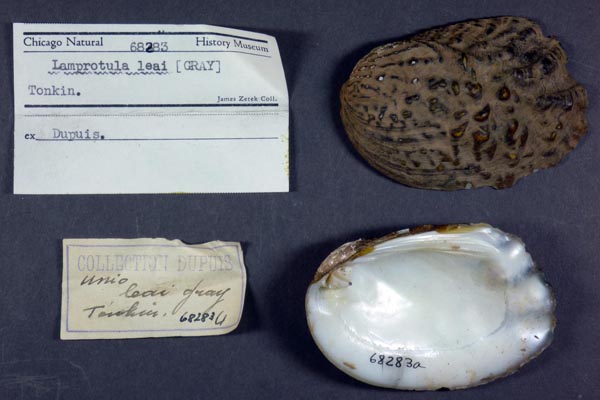 Chicago Natural 68283 History Museum
Lamprotula leai [GRAY]
Tonkin.
James Zetek Coll.
ex Dupuis.
COLLECTION DUPUIS
Unio
leai Gray
Tonkin.
68283a
68283a